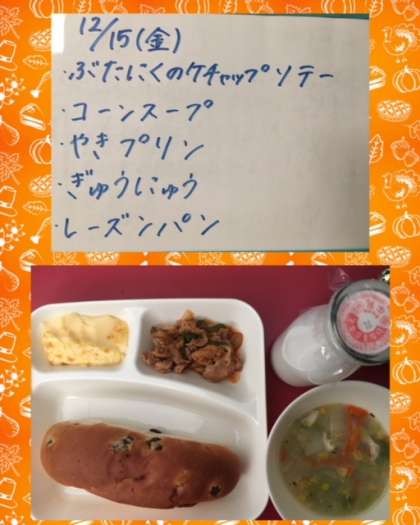 12/15(金)
・ぶたにくのケチャップソテー
・コーンスープ
・やきプリン
・ぎゅうにゅう
・レーズンパン